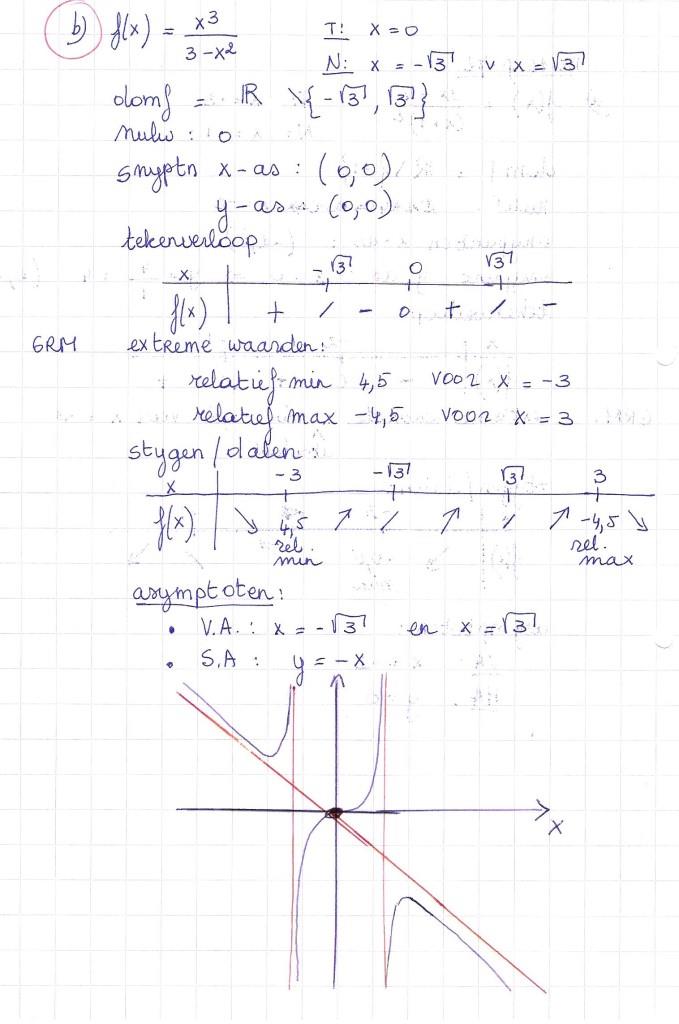 b) f(x) = x³ / (3-x²)   T: x = 0
N: x = -√3 v x = √3
domf = ℝ \ {-√3, √3}
nulw : 0
snyptn x-as : (0,0)
y-as : (0,0)
tekenverloop
x | -√3 0 √3
f(x) | + / - 0 + / -
GRM extreme waarden:
relatief min 4,5 voor x = -3
relatief max -4,5 voor x = 3
stygen / dalen :
x | -3 -√3 √3 3
f(x) | ↘ 4,5 ↗ / ↗ / ↗ -4,5 ↘
rel. min rel. max
asymptoten:
• V.A. : x = -√3 en x = √3
• S.A : y = -x
x